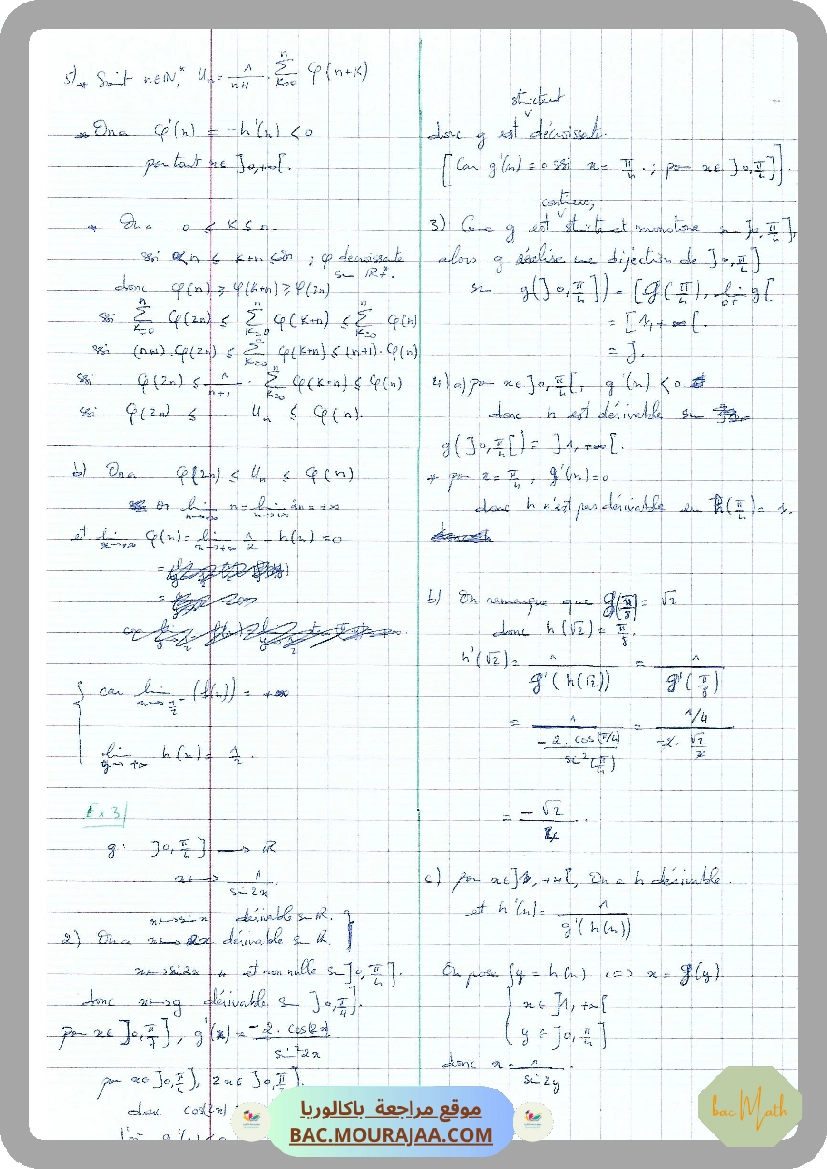 5) * Soit n∈ℕ*, Uₙ = 1/(n+1) · Σ_{k=0}^{n} φ(n+k)
* On a φ'(x) = -h'(x) < 0
pour tout x∈]0,+∞[.
* On a 0 ≤ k ≤ n
ssi n ≤ k+n ≤ 2n ; φ décroissante
sur ℝ₊*.
donc φ(n) ≥ φ(k+n) ≥ φ(2n)
ssi Σ_{k=0}^{n} φ(2n) ≤ Σ_{k=0}^{n} φ(k+n) ≤ Σ_{k=0}^{n} φ(n)
ssi (n+1)·φ(2n) ≤ Σ_{k=0}^{n} φ(k+n) ≤ (n+1)·φ(n)
ssi φ(2n) ≤ 1/(n+1) · Σ_{k=0}^{n} φ(k+n) ≤ φ(n)
ssi φ(2n) ≤ Uₙ ≤ φ(n).
b) On a φ(2n) ≤ Uₙ ≤ φ(n)
or lim_{n→+∞} n = lim_{n→+∞} 2n = +∞
et lim_{x→+∞} φ(x) = lim_{x→+∞} 1/2 - h(x) = 0
car lim (f(x)) = +∞
lim_{x→+∞} h(x) = 1/2.
Ex 3/
g: ]0,π/4] → ℝ
x ↦ 1/sin2x
x↦sin x dérivable sur ℝ.
2) On a x↦2x dérivable sur ℝ.
x↦sin2x " et non nulle sur ]0,π/4].
donc x↦g dérivable sur ]0,π/4].
pour x∈]0,π/4], g'(x) = -2·cos(2x)/sin²2x
pour x∈]0,π/4], 2x∈]0,π/2].
donc cos(2x)
strictement
donc g est décroissante.
[Car g'(x)=0 ssi x = π/4 ; pour x∈]0,π/4]].
continue,
3) Comme g est strictement monotone sur ]0,π/4],
alors g réalise une bijection de ]0,π/4]
sur g(]0,π/4]) = [g(π/4), lim_{0⁺} g[
= [1,+∞[.
= J.
4) a) pour x∈]0,π/4[, g'(x) < 0
donc h est dérivable sur
g(]0,π/4[) = ]1,+∞[.
* pour x = π/4, g'(x)=0
donc h n'est pas dérivable en g(π/4) = 1.
b) On remarque que g(π/8) = √2
donc h(√2) = π/8.
h'(√2) = 1/g'(h(√2)) = 1/g'(π/8)
= 1/(-2·cos(π/4)/sin²(π/4)) = (1/4)/(-2·√2/2)
= -√2/4.
c) pour x∈]1,+∞[, On a h dérivable.
et h'(x) = 1/g'(h(x))
On pose {y = h(x) <=> x = g(y)
x∈]1,+∞[
y∈]0,π/4]
donc x = 1/sin2y.
موقع مراجعة باكالوريا
BAC.MOURAJAA.COM
bac Math